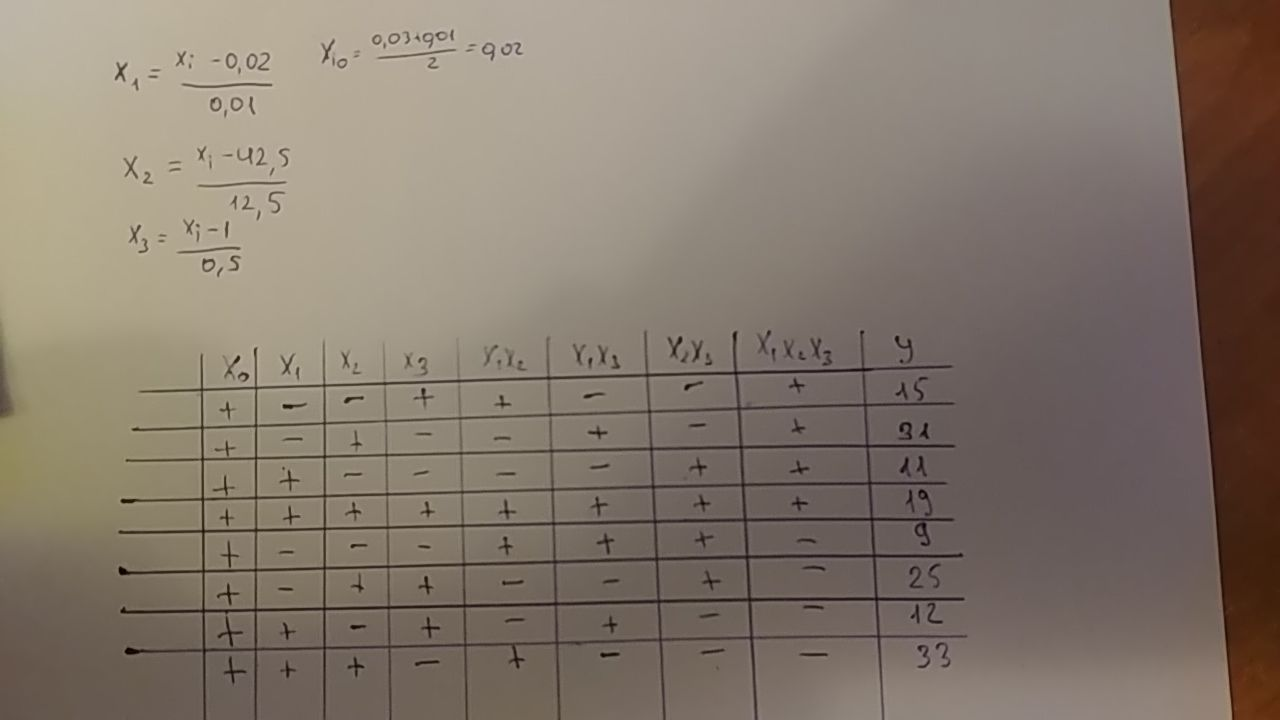 X₁ = (xi - 0,02) / 0,01   Xi₀ = (0,03+0,01) / 2 = 0,02
X₂ = (xi - 42,5) / 12,5
X₃ = (xi - 1) / 0,5
X₀ X₁ X₂ X₃ X₁X₂ X₁X₃ X₂X₃ X₁X₂X₃ y
+ - - + + - - + 15
+ - + - - + - + 31
+ + - - - - + + 11
+ + + + + + + + 19
+ - - - + + + - 9
+ - + + - - + - 25
+ + - + - + - - 12
+ + + - + - - - 33